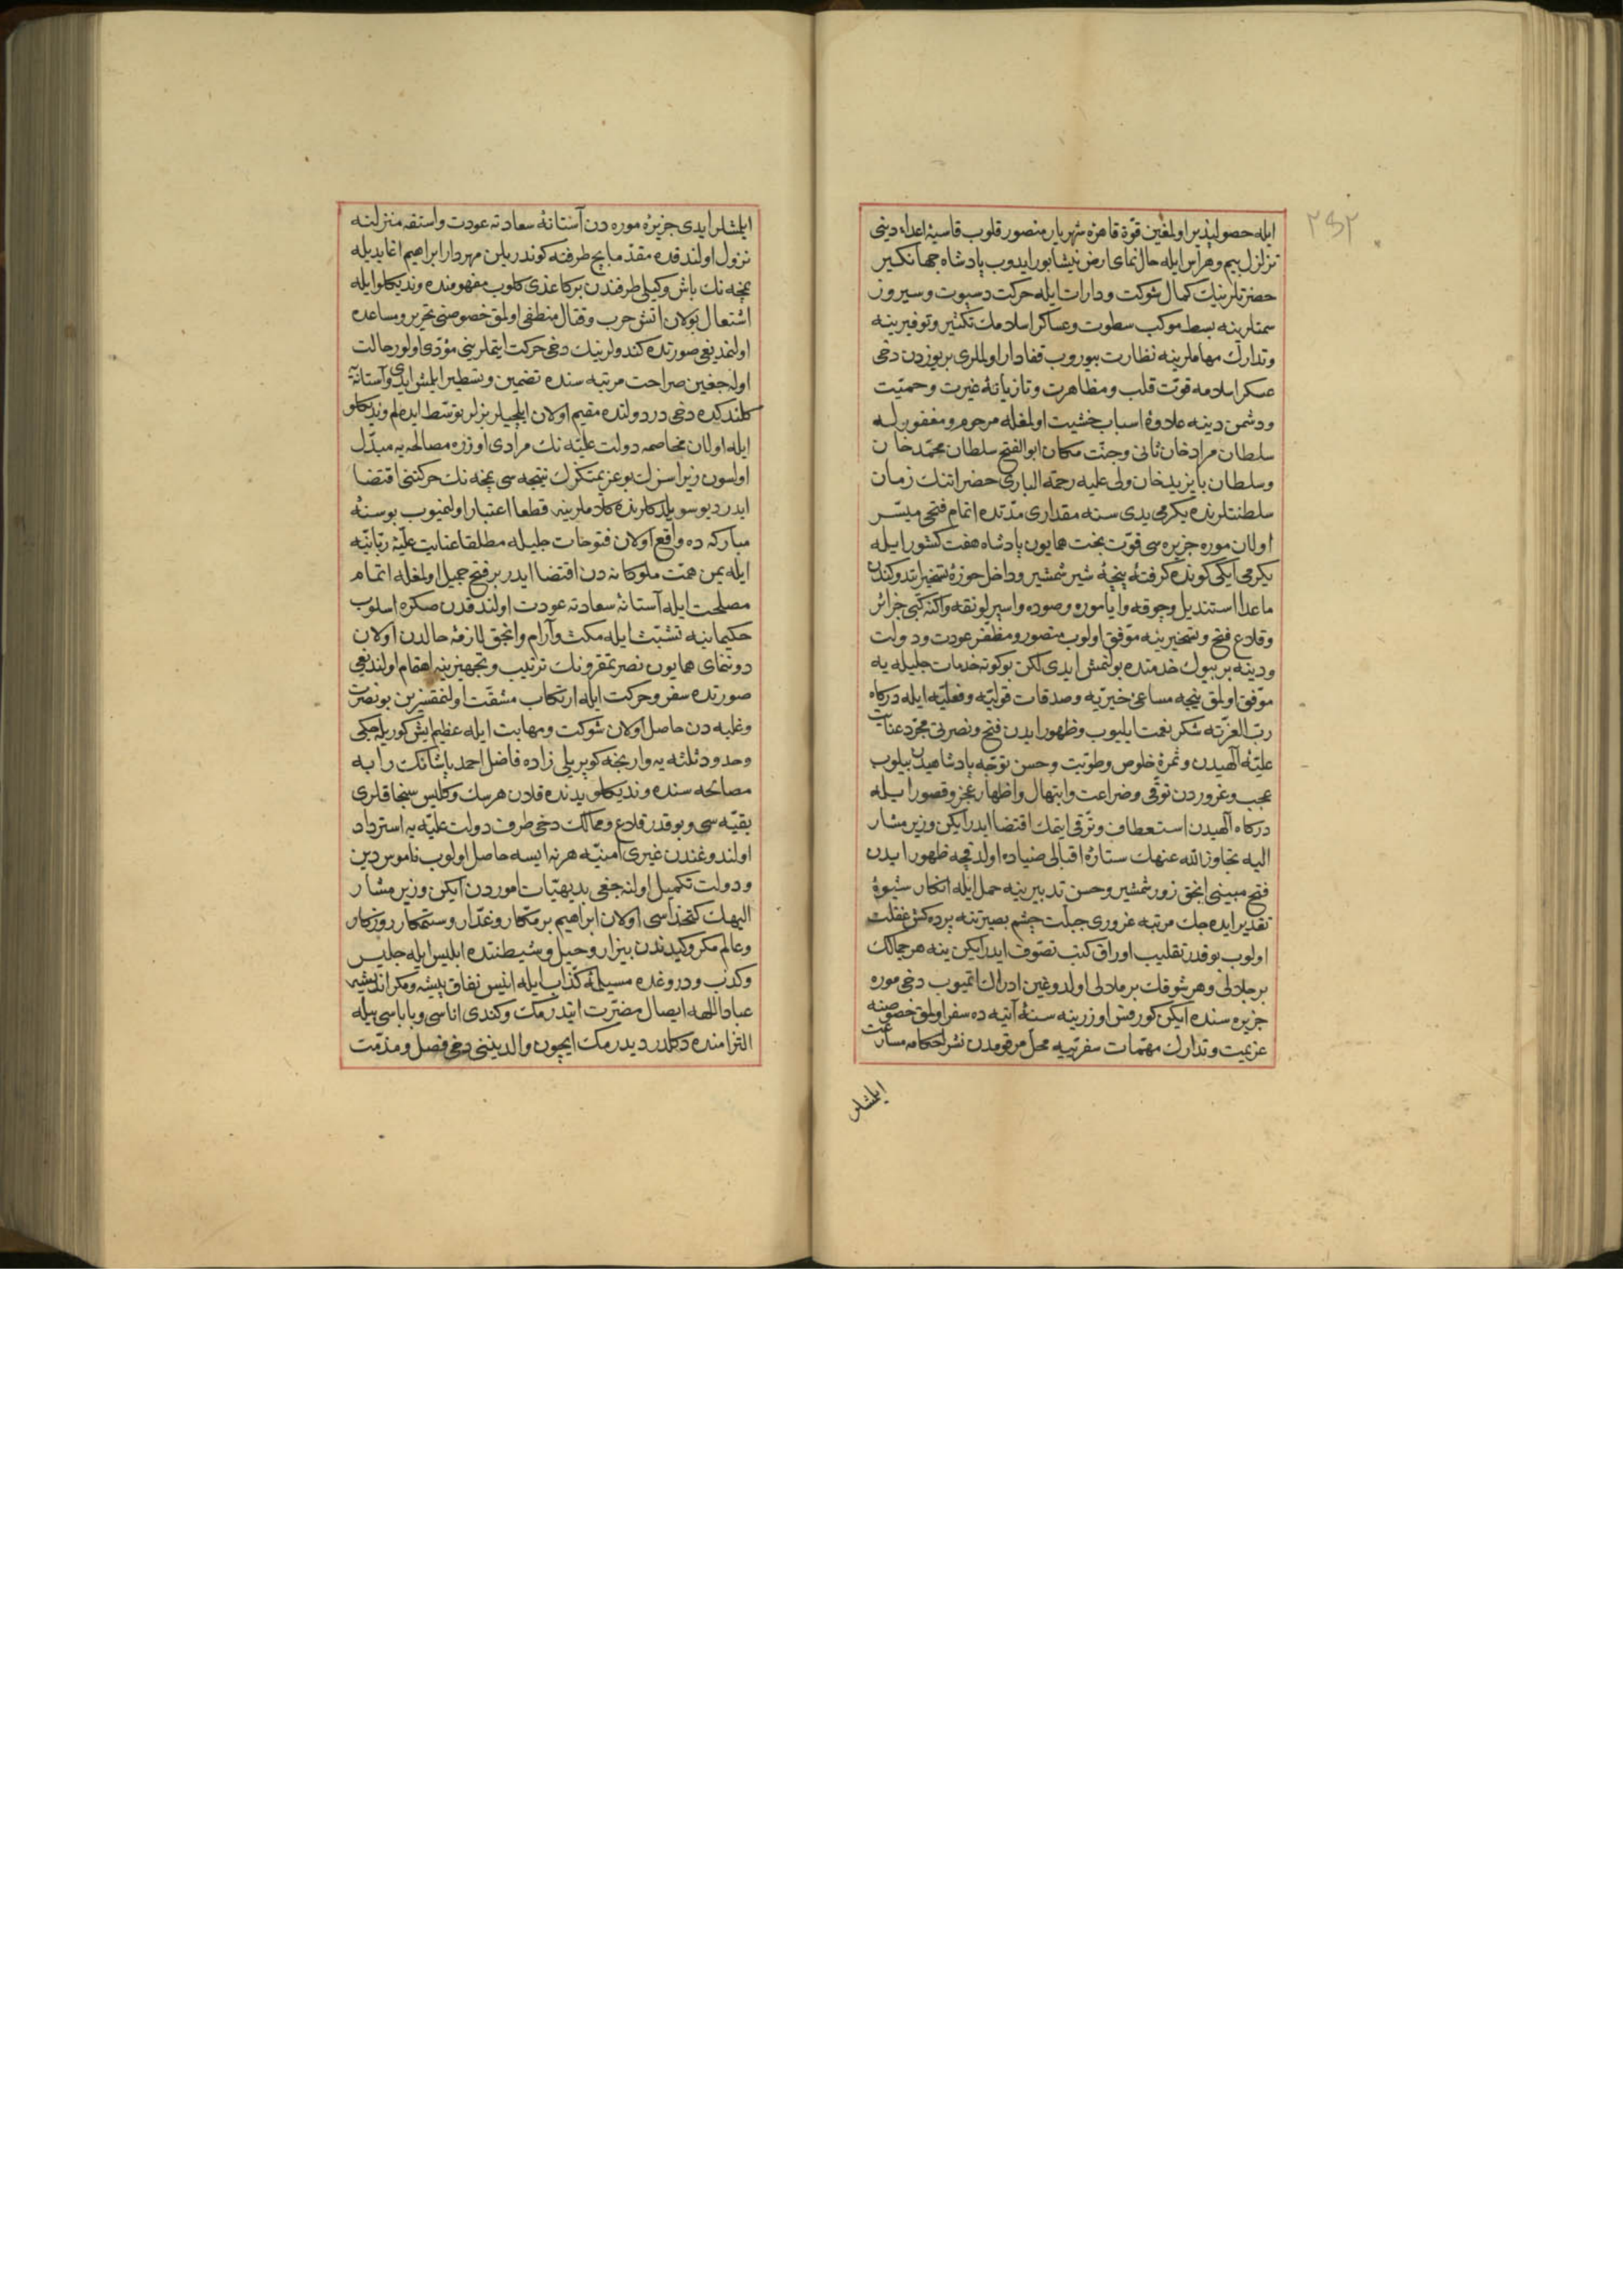 ٢٤٢
ايله حصولپذير اولمغين قوة قاهرۀ شهريار منصور قلوب قاسيۀ اعداء دينى
تزلزل بيم وهراس ايله حالنماى ارض نيشابور ايدوب پادشاه جهانكير
حضرتلرينك كمال شوكت ودارات ايله حركت دسپوت وسيروز
سمتلرينه بسط موكب سطوت وعساكر اسلامك تكثير وتوفيرينه
وتدارك مهاملرينه نظارت بيوروب قفادار اولملرى بريوزدن دخى
عسكر اسلامه قوت قلب ومظاهرت وتازيانۀ غيرت وحميت
ودشمن دينه علاوۀ اسباب خشيت اولمغله مرحوم ومغفور له
سلطان مراد خان ثانى وجنت مكان ابو الفتح سلطان محمد خان
وسلطان بايزيد خان ولى عليه رحمة البارى حضراتنك زمان
سلطنتلرنده يكرمى يدى سنه مقدارى مدتده اتمام فتحى ميسر
اولان موره جزيره سى قوت بخت همايون پادشاه هفت كشور ايله
يكرمى ايكى كونده كرفتۀ پنجۀ شير شمشير وداخل حوزۀ تسخير ايتدوكندن
ماعدا استنديل وچوقه وايامورو وصوده واسپرلونقه واكنه كبى جزائر
وقلاع فتح وتسخيرينه موفق اولوب منصور ومظفر عودت ودولت
ودينه بر بيوك خدمتده بولنمش ايدى لكن بوكونه خدمات جليله يه
موفق اولمق نيجه مساعئ خيريه وصدقات قوليه وفعليه ايله دركاه
رب العزته شكر نعمت ايليوب وظهور ايدن فتح ونصرتى مجرد عنايت
عليۀ آلهيدن وثمرۀ خلوص وطويت وحسن توجه پادشاهيدن بيلوب
عجب وغروردن توقى وضراعت وابتهال واظهار عجز وقصور ايله
دركاه آلهيدن استعطاف وترقى ايتمك اقتضا ايدرايكن وزير مشار
اليه تجاوز الله عنهك ستارۀ اقبالى ضياده اولدقجه ظهور ايدن
فتح مبينى انجق زور شمشير وحسن تدبيرينه حمل ايله انكار شيوۀ
تقدير ايده جك مرتبه غرورى جبلت چشم بصيرتنه پرده كش غفلت
اولوب بو قدر تقليب اوراق كتب تصوف ايدرايكن ينه هر جمالك
بر جلالى وهر شوقك بر ملالى اولدوغين ادراك اتميوب دخى موره
جزيره سنده ايكن كورفس اوزرينه سنۀ آتيه ده سفر اولمق خصوصنه
عزيمت وتدارك مهمات سفريه محل مرقومدن نشر احكامه مسارعت
ايلمشلر
ايلمشلر ايدى جزيرۀ موره دن آستانۀ سعادته عودت واستفه منزلنه
نزول اولندقده مقدما بچ طرفنه كوندريلن مهردار ابراهيم اغا يديله
نمچه نك باش وكيلى طرفندن بر كاغدى كلوب مفهومنده ونديكلو ايله
اشتعال بولان اتش حرب وقتال منطفى اولمق خصوصنى تحرير ومساعده
اولنمديغى صورتده كندولرينك دخى حركت ايتملرينى مؤدى اولور حالت
اوله جغين صراحت مرتبه سنده تضمين وتسطير ايلمش ايدى وآستانه يه
كلندكده دخى در دولتده مقيم اولان ايلچيلر بزلر توسط ايده لم ونديكلو
ايله اولان مخاصمه دولت عليه نك مرادى اوزره مصالحه يه مبدل
اولسون زيرا سزك بو عزيمتكزك نتيجه سى نمچه نك حركتنى اقتضا
ايدر ديو سويلدكلرنده كلاملرينه قطعا اعتبار اولنميوب بو سنۀ
مباركه ده واقع اولان فتوحات جليله مطلقا عنايت عليۀ ربانيه
ايله يمن همت ملوكانه دن اقتضا ايدر بر فتح جميل اولمغله اتمام
مصلحت ايله آستانۀ سعادته عودت اولندقدن صكره اسلوب
حكيمانيه تشبث ايله مكث وآرام وانجق لازمۀ حالدن اولان
دوننماى همايون نصرتمقرونك ترتيب وتجهيزينه اهتمام اولنديغى
صورتده سفر وحركت ايله ارتكاب مشقت اولنمقسزين بو نصرت
وغلبه دن حاصل اولان شوكت ومهابت ايله عظيم ايش كوريله جكى
وحدود ثلثه يه وارنجه كوپريلى زاده فاضل احمد پاشانك رابه
مصالحه سنده ونديكلو يدنده قلان هرسك وكليس سنجاقلرى
بقيه سى وبو قدر قلاع وممالك دخى طرف دولت عليه يه استرداد
اولندوغندن غيرى امنيه هر نه ايسه حاصل اولوب ناموس دين
ودولت تكميل اوله جغى بديهيات اموردن ايكن وزير مشار
اليهك كتخداسى اولان ابراهيم بر مكار وغدار وستمكار روزكار
وعالم مكر وكيدندن بيزار وحيل وشيطنتده ابليس ايله جليس
وكذب ودروغده مسيلمۀ كذاب ايله انيس نفاق پيشه ومكر انديشه
عباد اللهه ايصال مضرت ايتدرمك وكندى اناسى وباباسى بيله
التزامنده دكلدر ديدرمك ايچون والدينى دخى فصل ومذمت